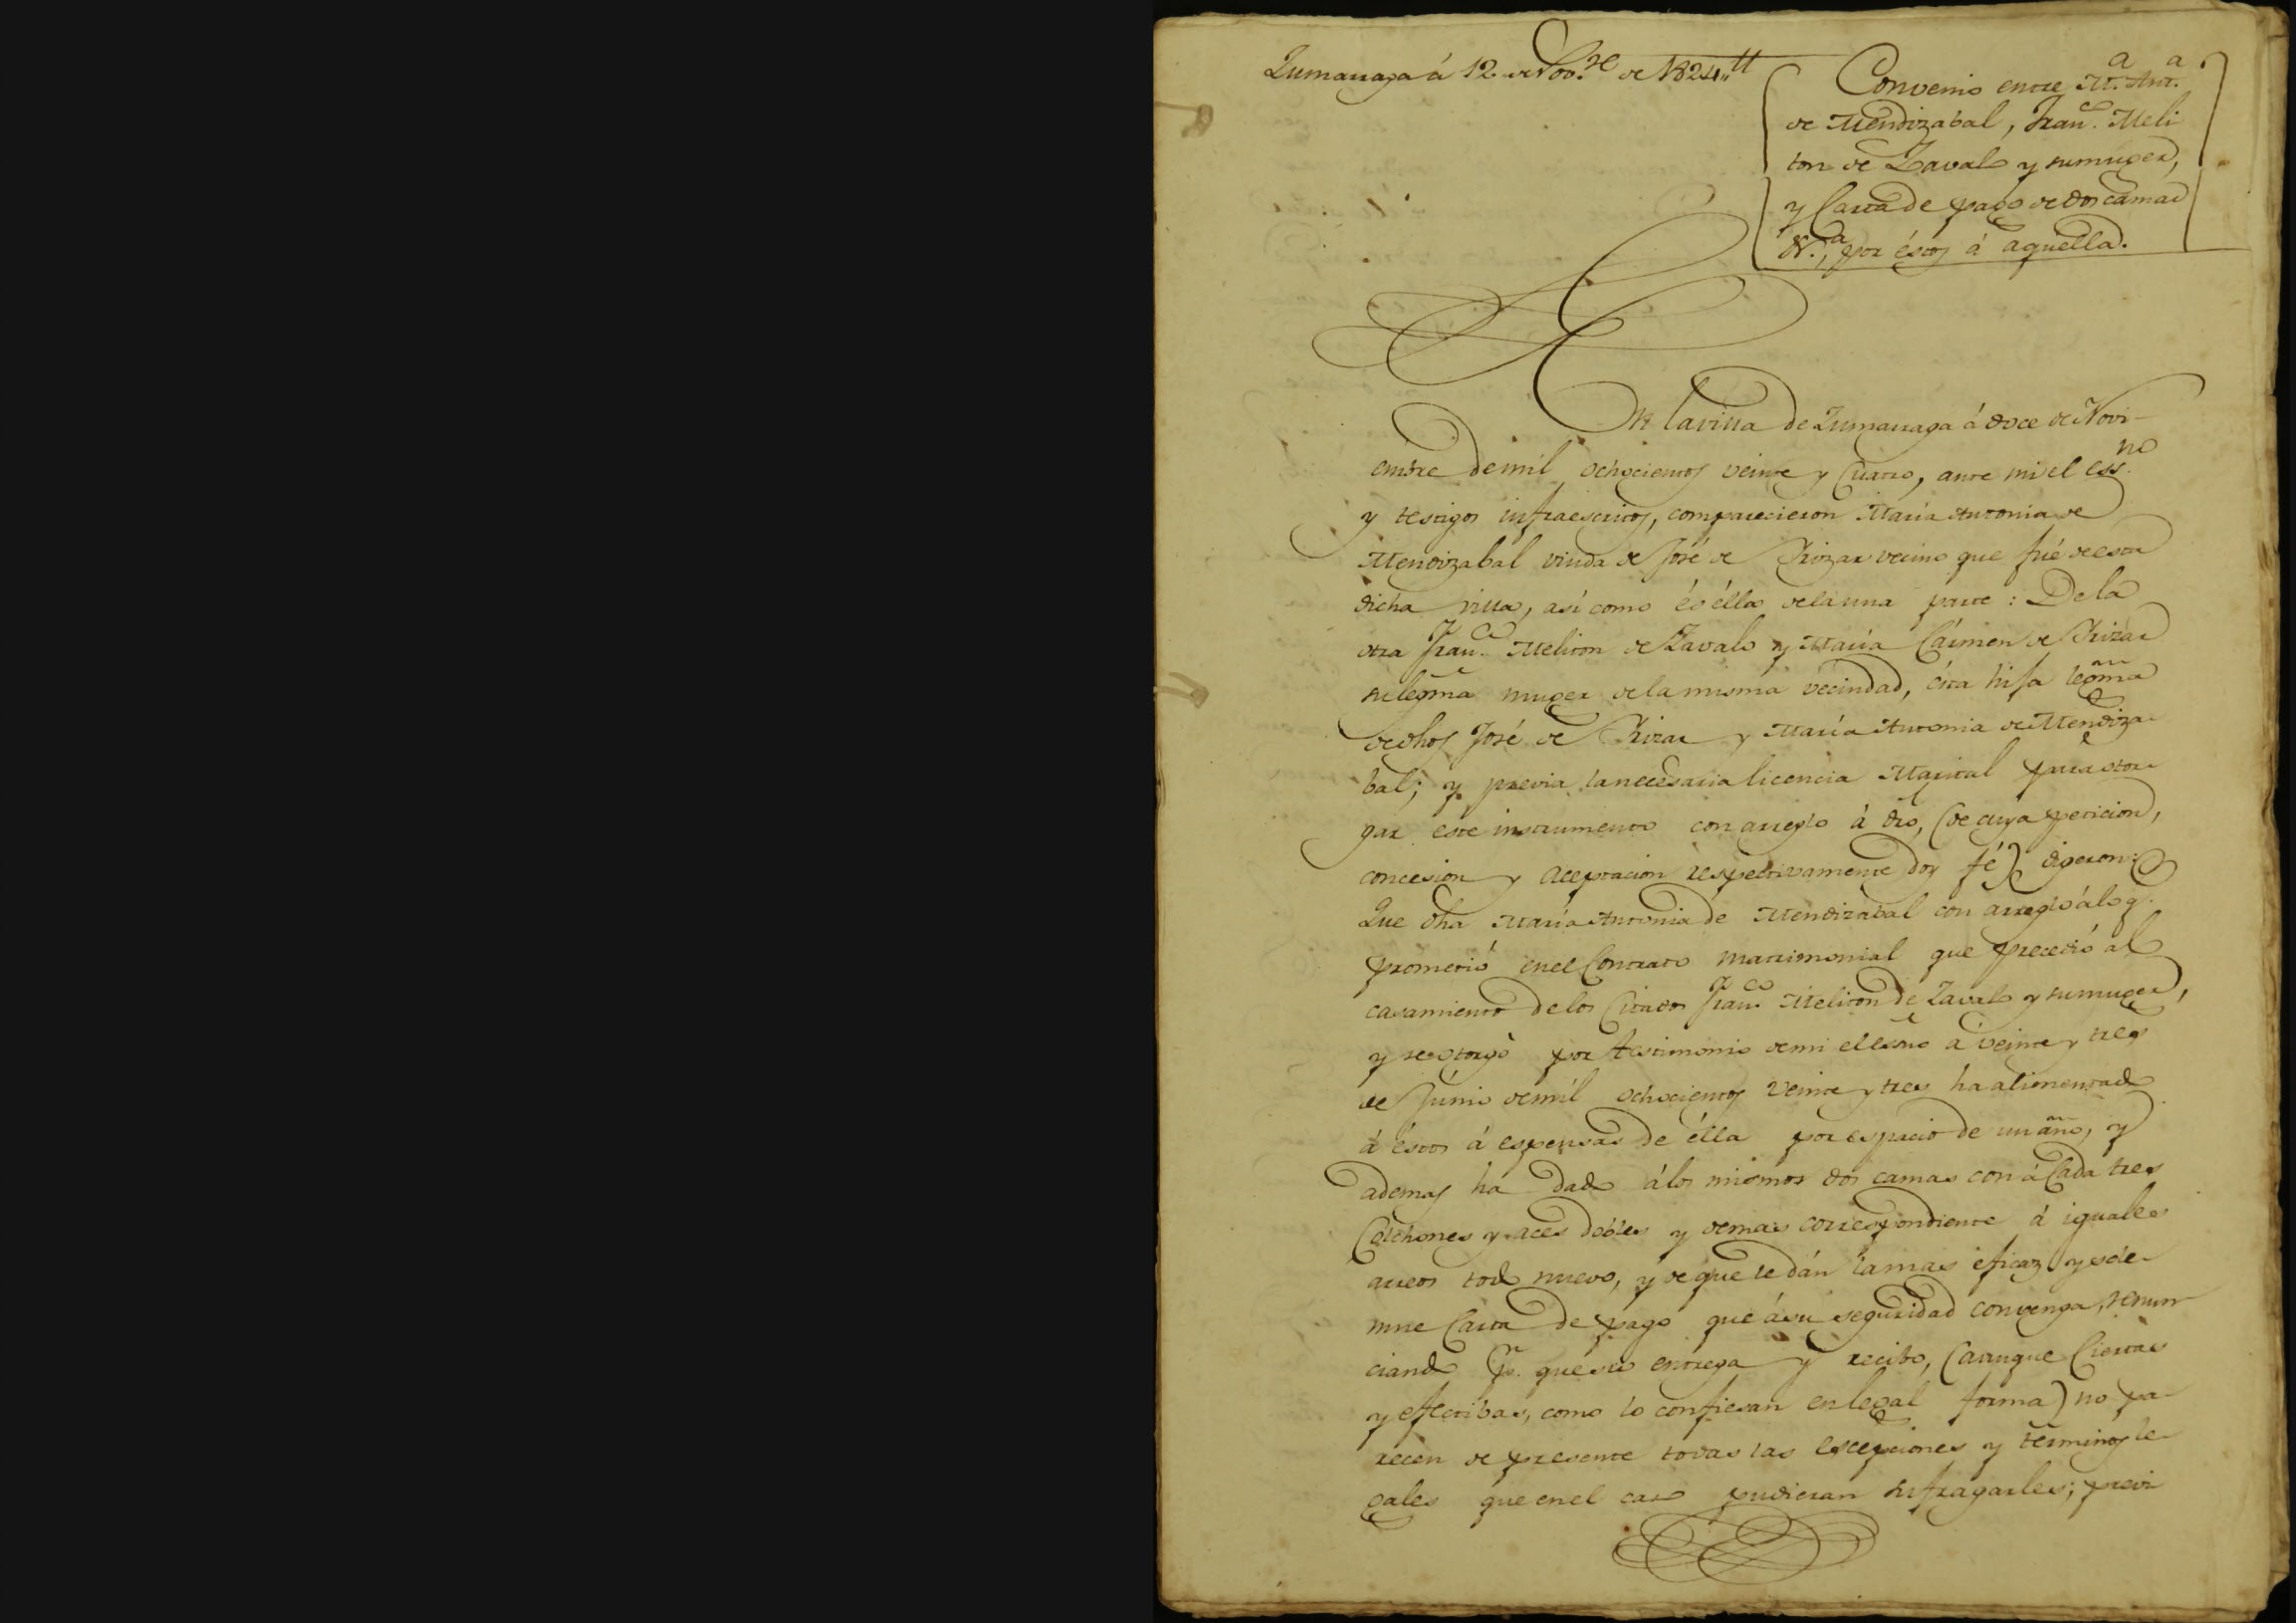 Zumarraga á 12. de Nov.re de 1824,,
Convenio entre M.a Ant.a
de Mendizabal, Fran.co Meli
ton de Zavalo y su muger,
y Carta de pago de dos camas
&.a, por éstos á aquella.
En la villa de Zumarraga á doce de Novi-
embre de mil ochocientos veinte y cuatro, ante mi el ess.no
y testigos infraescritos, comparecieron María Antonia de
Mendizabal viuda de José de Irizar vecino que fué de esta
dicha villa, así como és élla de la una parte: De la
otra Fran.co Meliton de Zavalo y María Cármen de Irizar
su legma muger de la misma vecindad, ésta hija legma
de dhos José de Irizar y María Antonia de Mendiza
bal; y previa la necesaria licencia Marital para otor
gar este instrumento con arreglo á dro, (de cuya peticion,
concesion y aceptacion respectivamente doy fé) digeron:
Que dha María Antonia de Mendizabal con arreglo á lo q.
prometió en el Contrato matrimonial que precedió al
casamiento de los Citados Fran.co Meliton de Zavalo y su muger,
y se otorgó por testimonio de mi el esno á veinte y tres
de Júnio de mil ochocientos veinte y tres ha alimentado
á éstos á espensas de élla por espacio de un año, y
ademas ha dado á los mismos dos camas con á Cada tres
Colchones y aces dobles y demas correspondiente á iguales
arreos todo nuevo, y de que le dán la mas eficaz y sole-
mne Carta de pago que á su seguridad convenga, renun
ciando p.r que su entrega y recibo, (aunque Ciertas
y efectibas, como lo confiesan en legal forma) no pa-
recen de presente todas las escepciones y términos le-
gales que en el caso pudieran sufragarles; previ